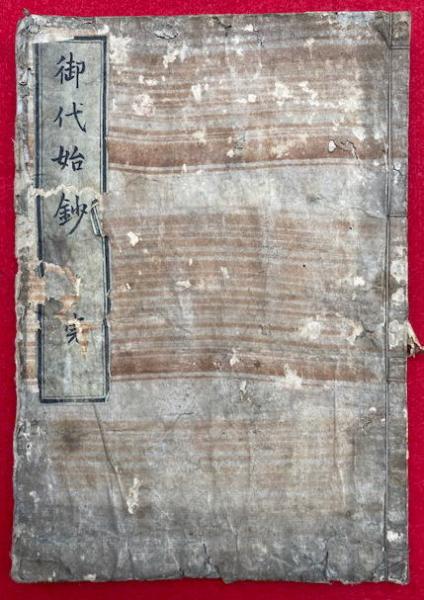 御代始鈔 完